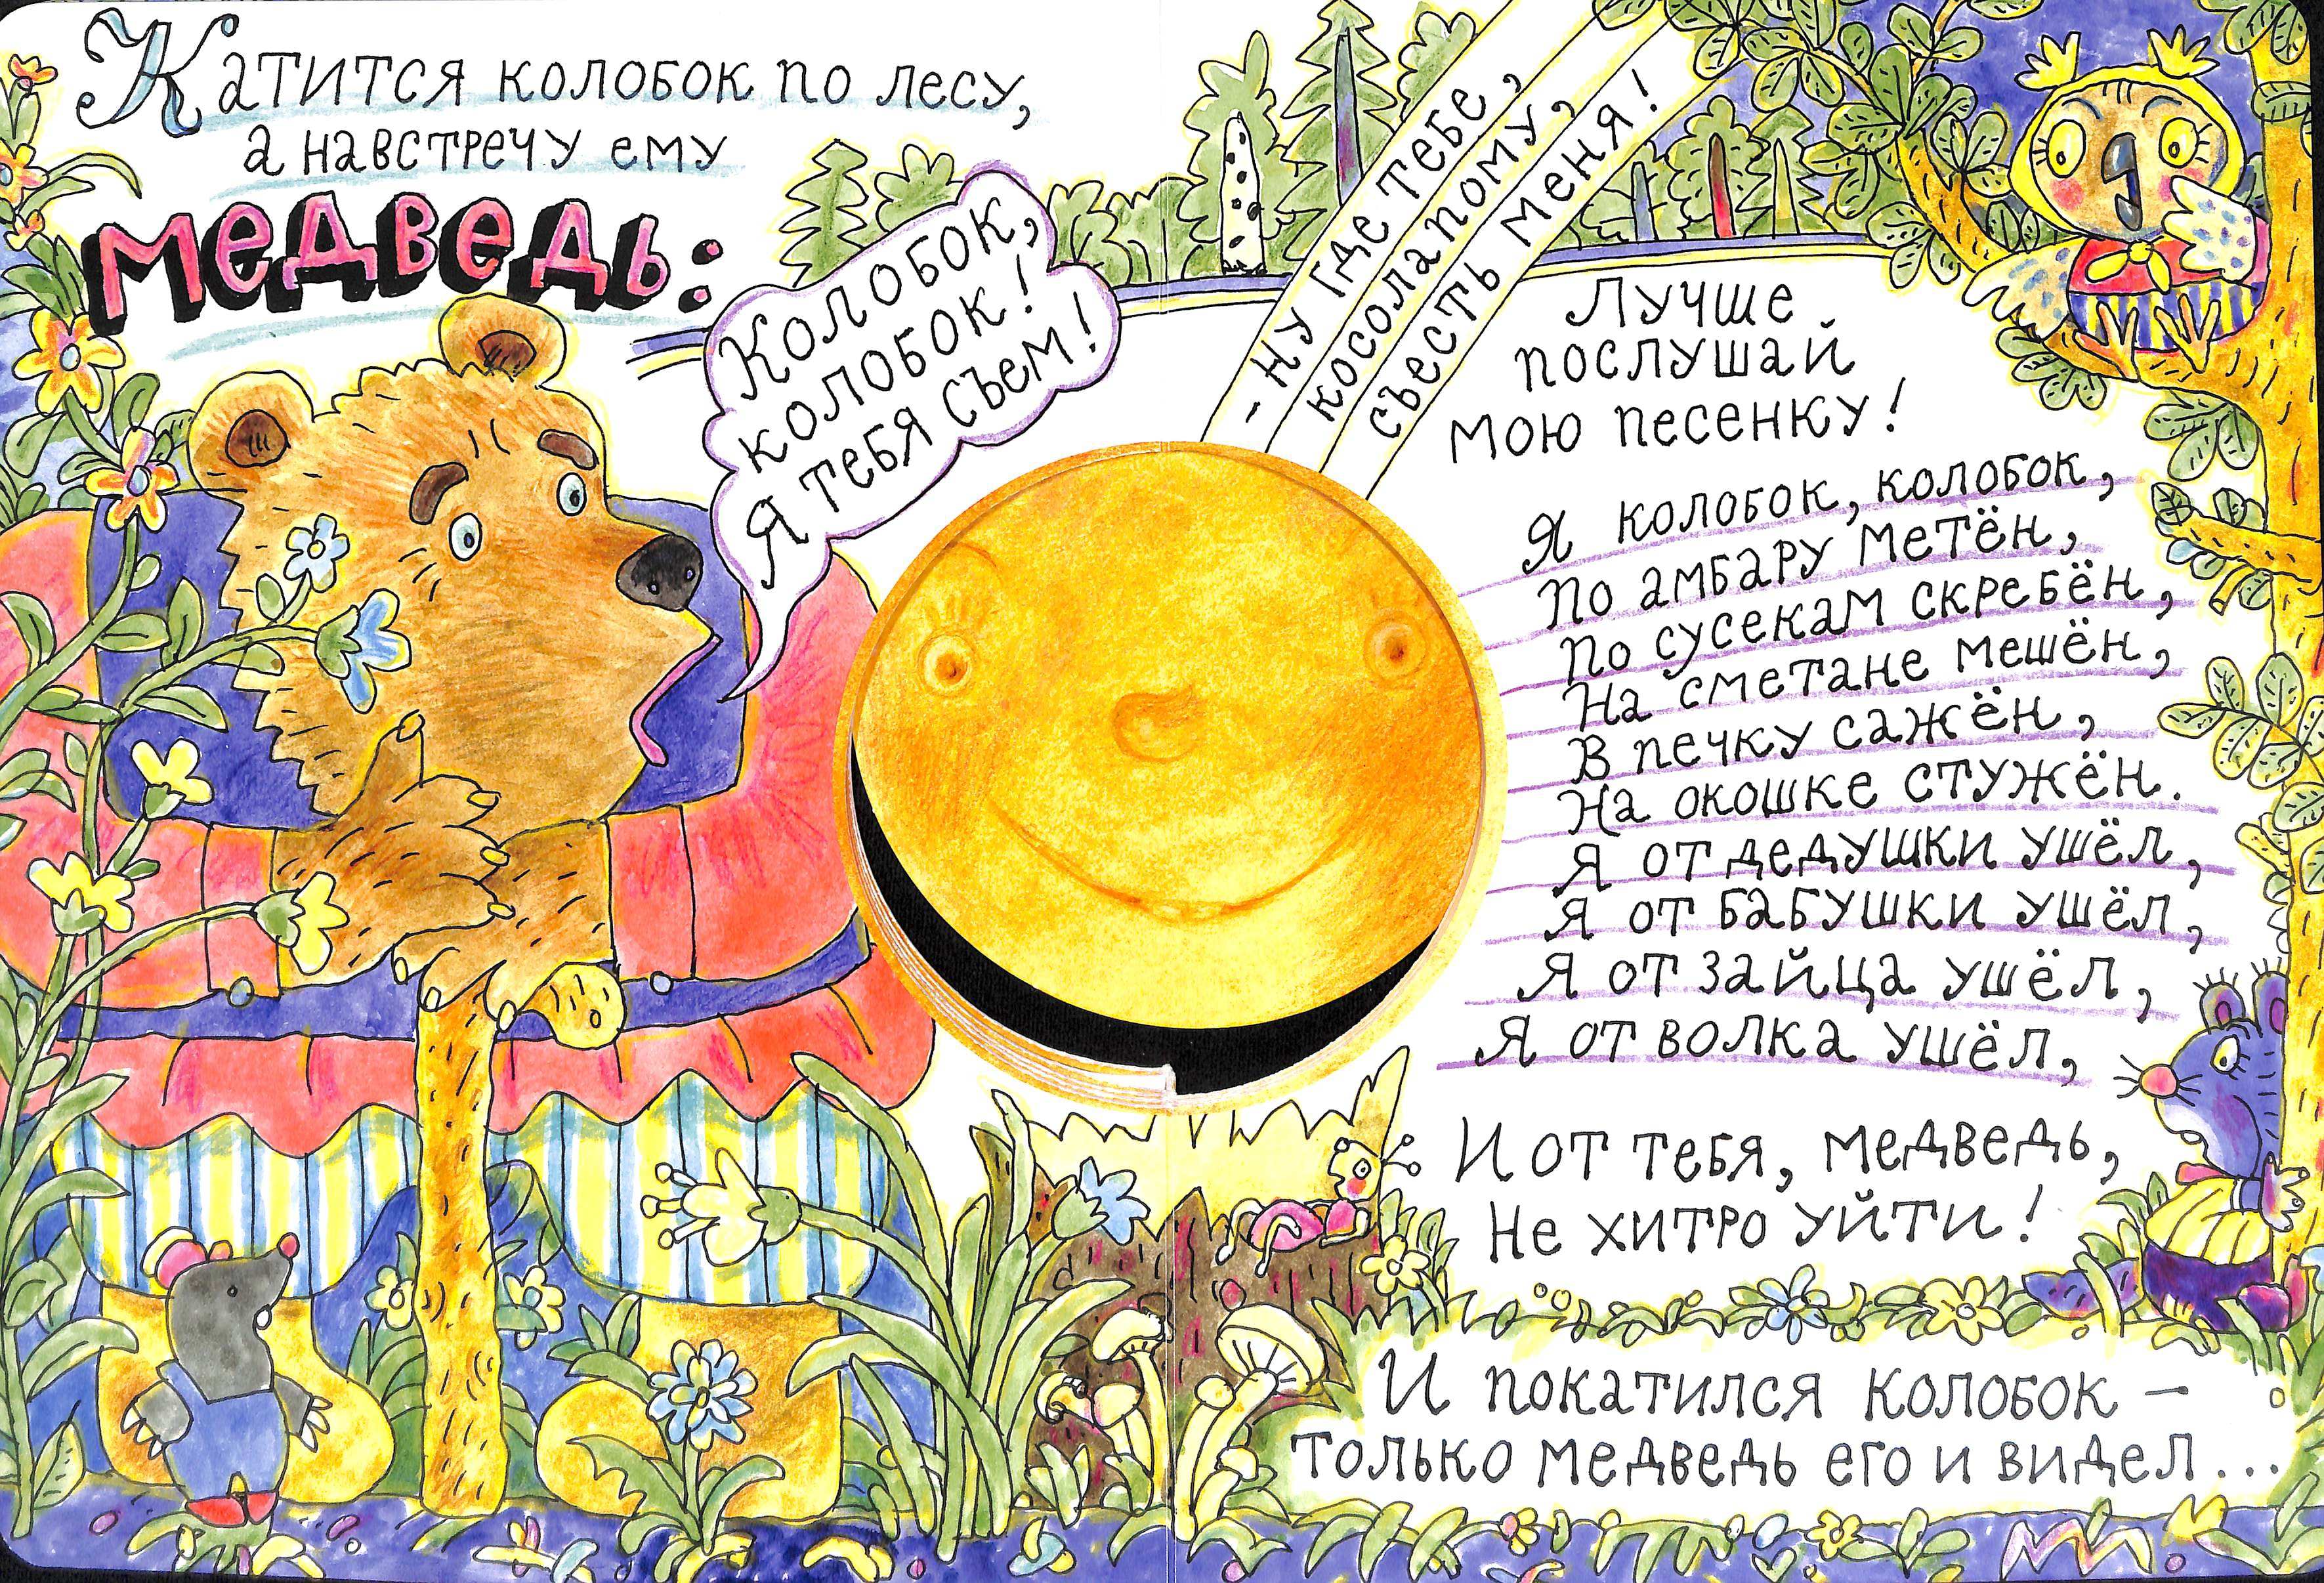 Катится колобок по лесу,
а навстречу ему
медведь:
Колобок,
колобок!
Я тебя съем!
- Ну где тебе,
косолапому,
съесть меня!
Лучше
послушай
мою песенку!
Я колобок, колобок,
По амбару метён,
По сусекам скребён,
На сметане мешён,
В печку сажён,
На окошке стужён.
Я от дедушки ушёл,
Я от бабушки ушёл,
Я от зайца ушёл,
Я от волка ушёл,
И от тебя, медведь,
Не хитро уйти!
И покатился колобок –
только медведь его и видел...